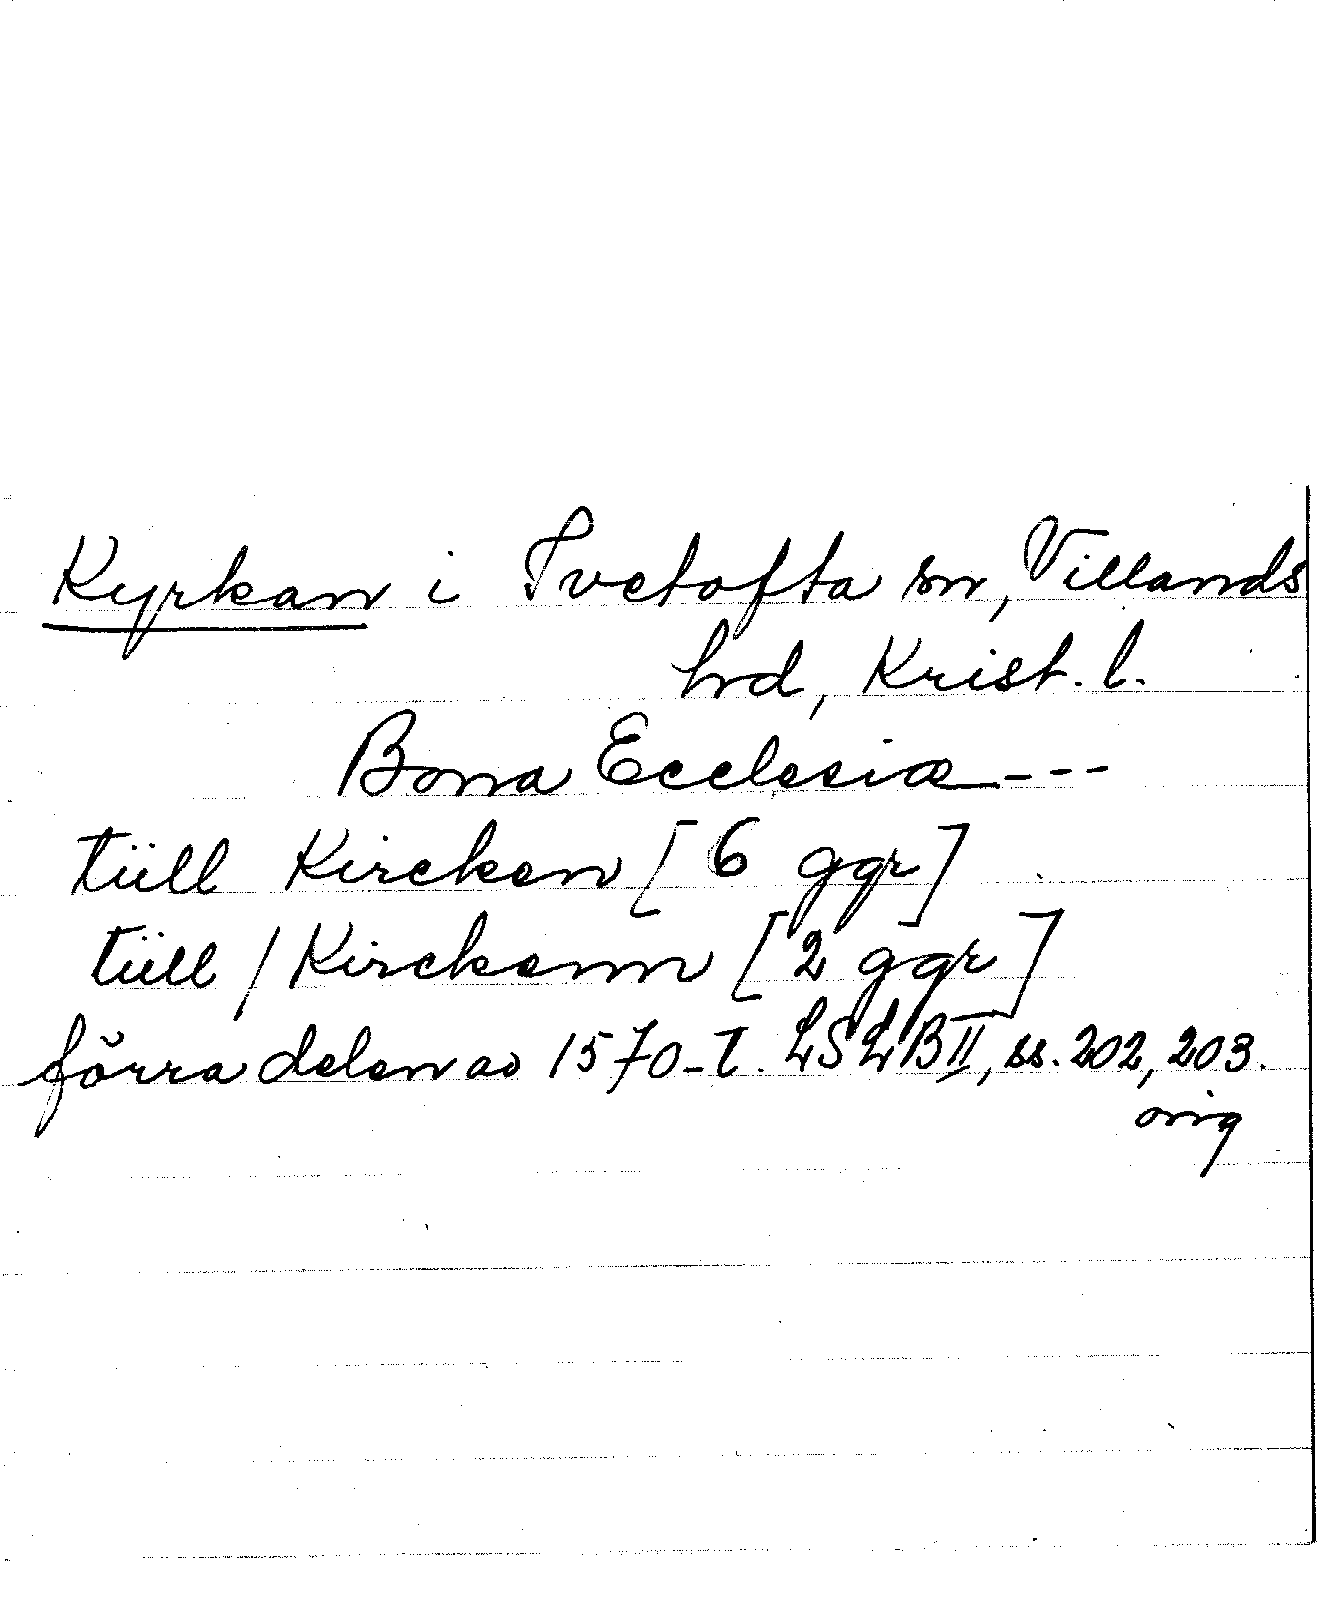 Kyrkan i Ivetofta sn, Villands
hrd, Krist. l.
Bona Ecclesiæ ---
tüll Kircken [6 ggr]
tüll / Kirckenn [2 ggr]
förra delen av 1570-t. LSLB II, ss. 202, 203.
orig